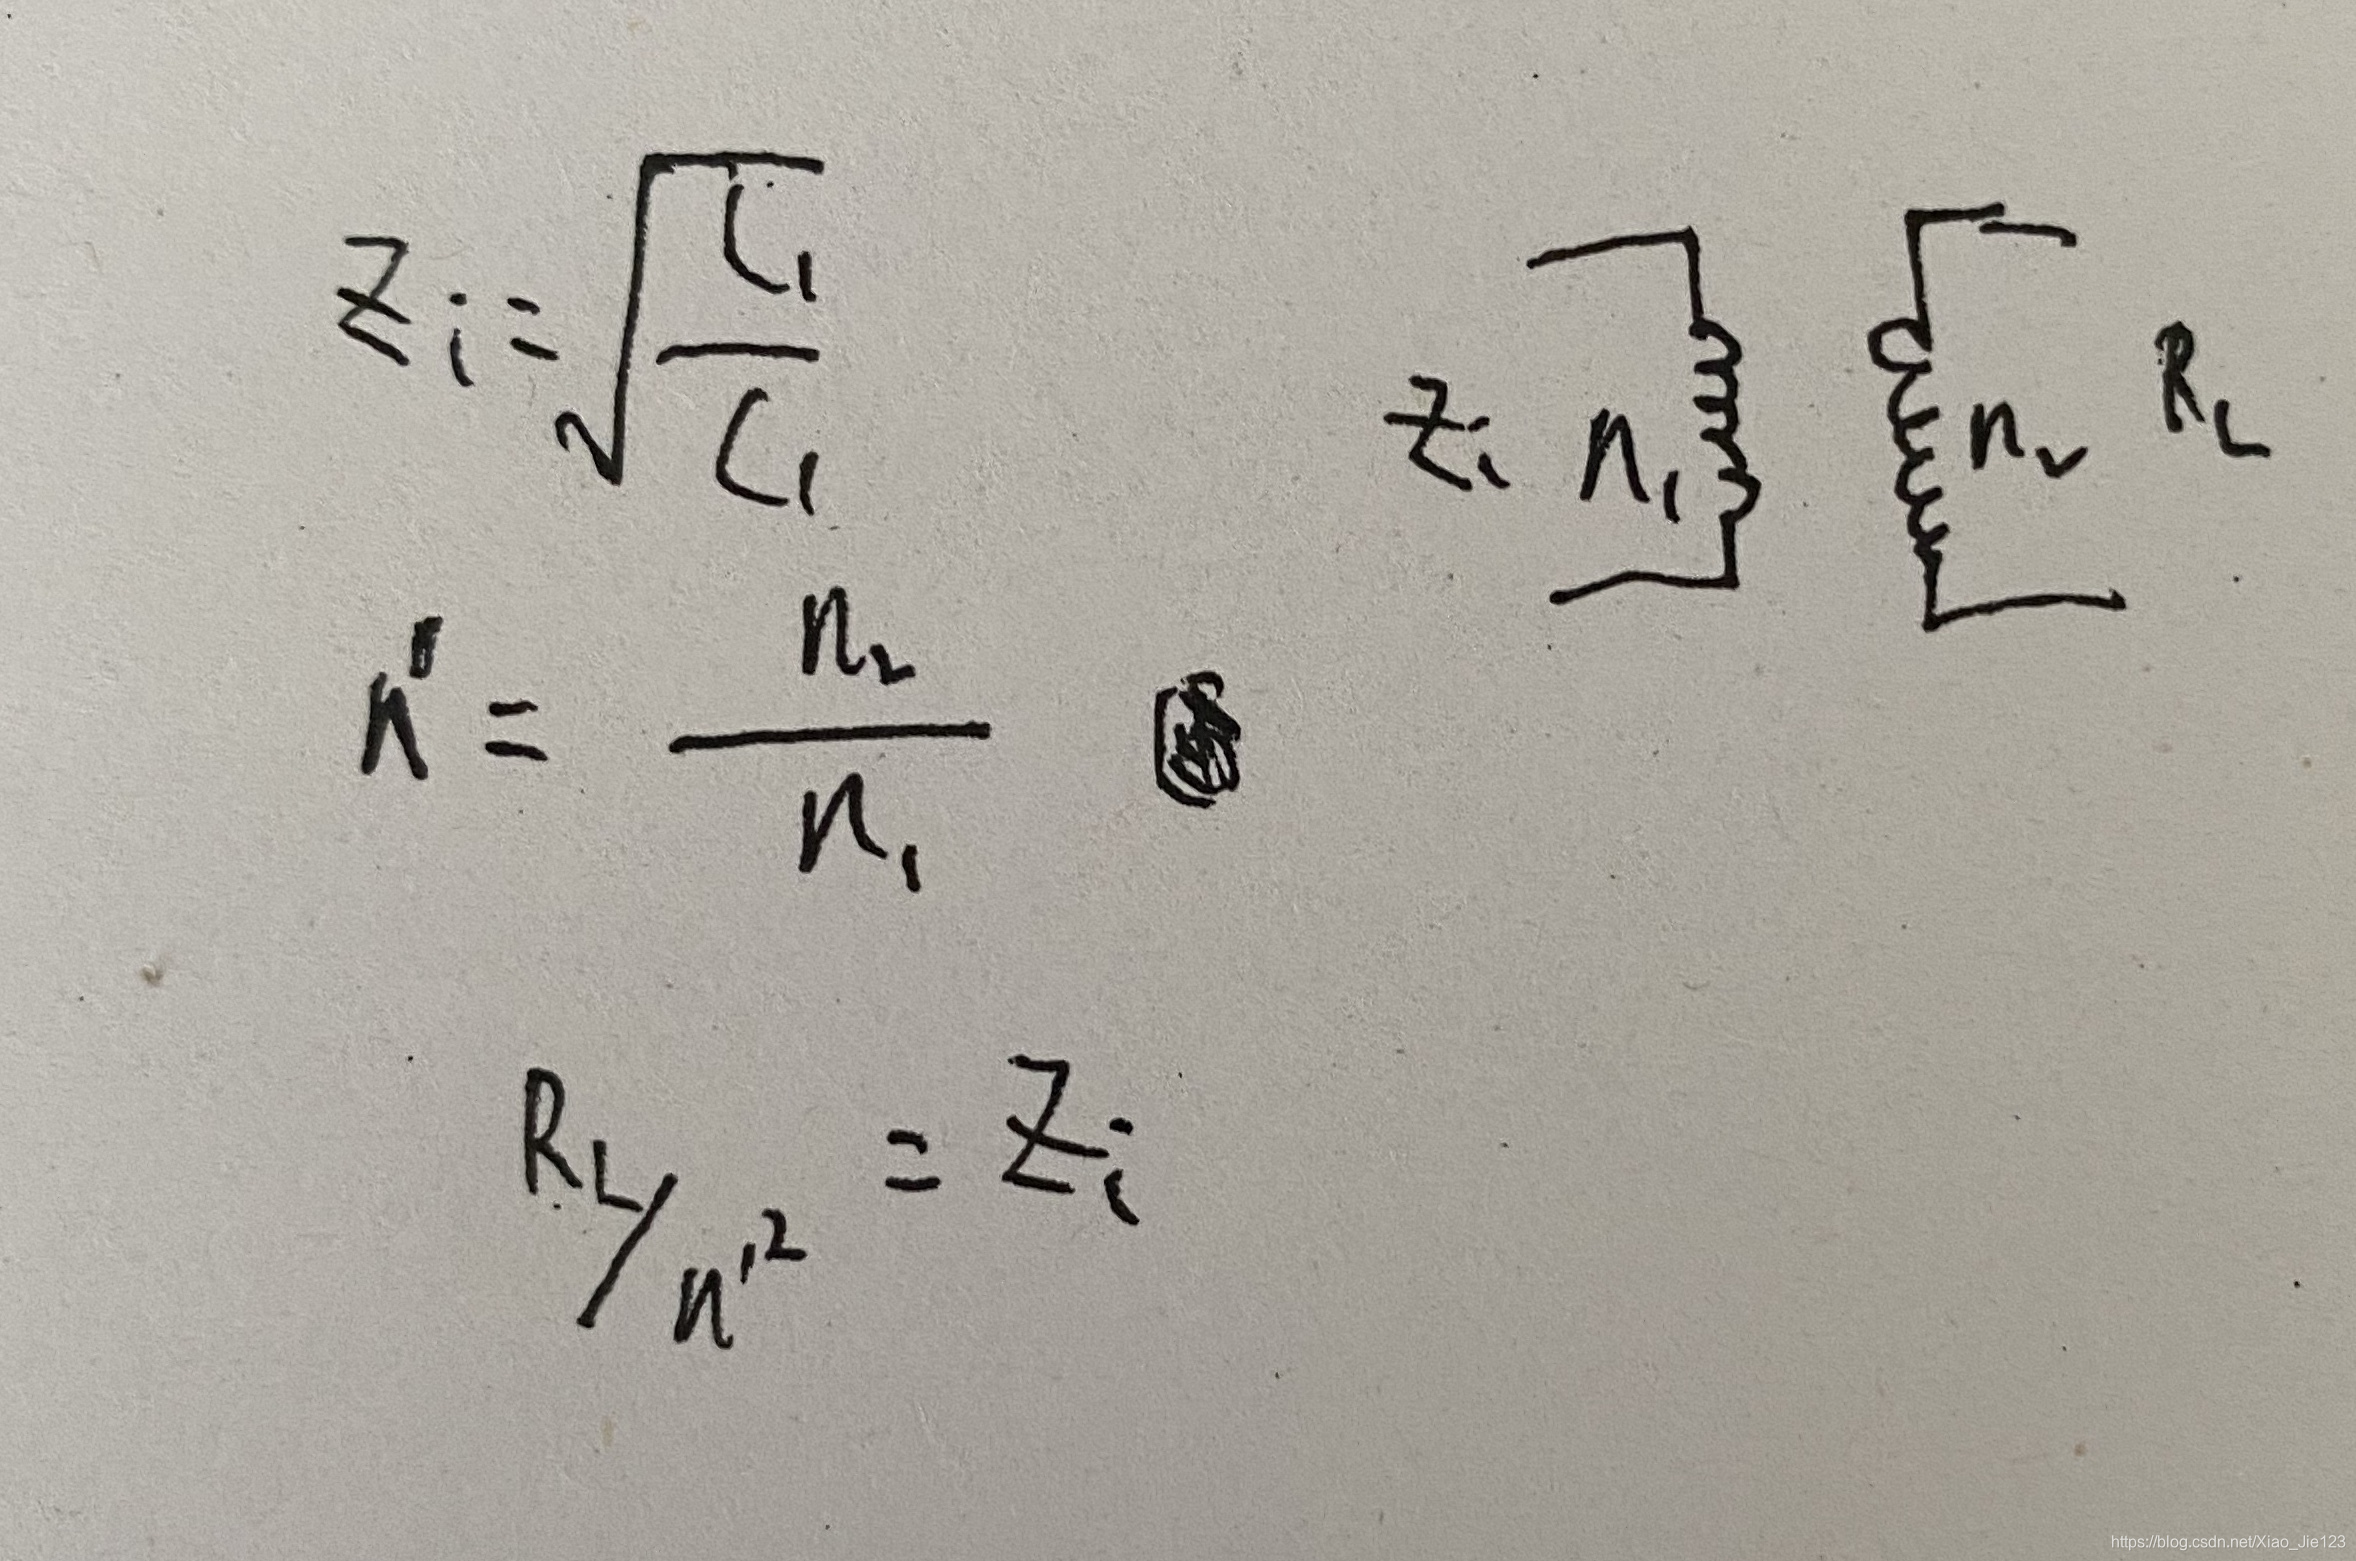 Zi = √(L1/C1)
Zi n1 n2 RL
n' = n2/n1
RL/n'² = Zi
https://blog.csdn.net/Xiao_Jie123